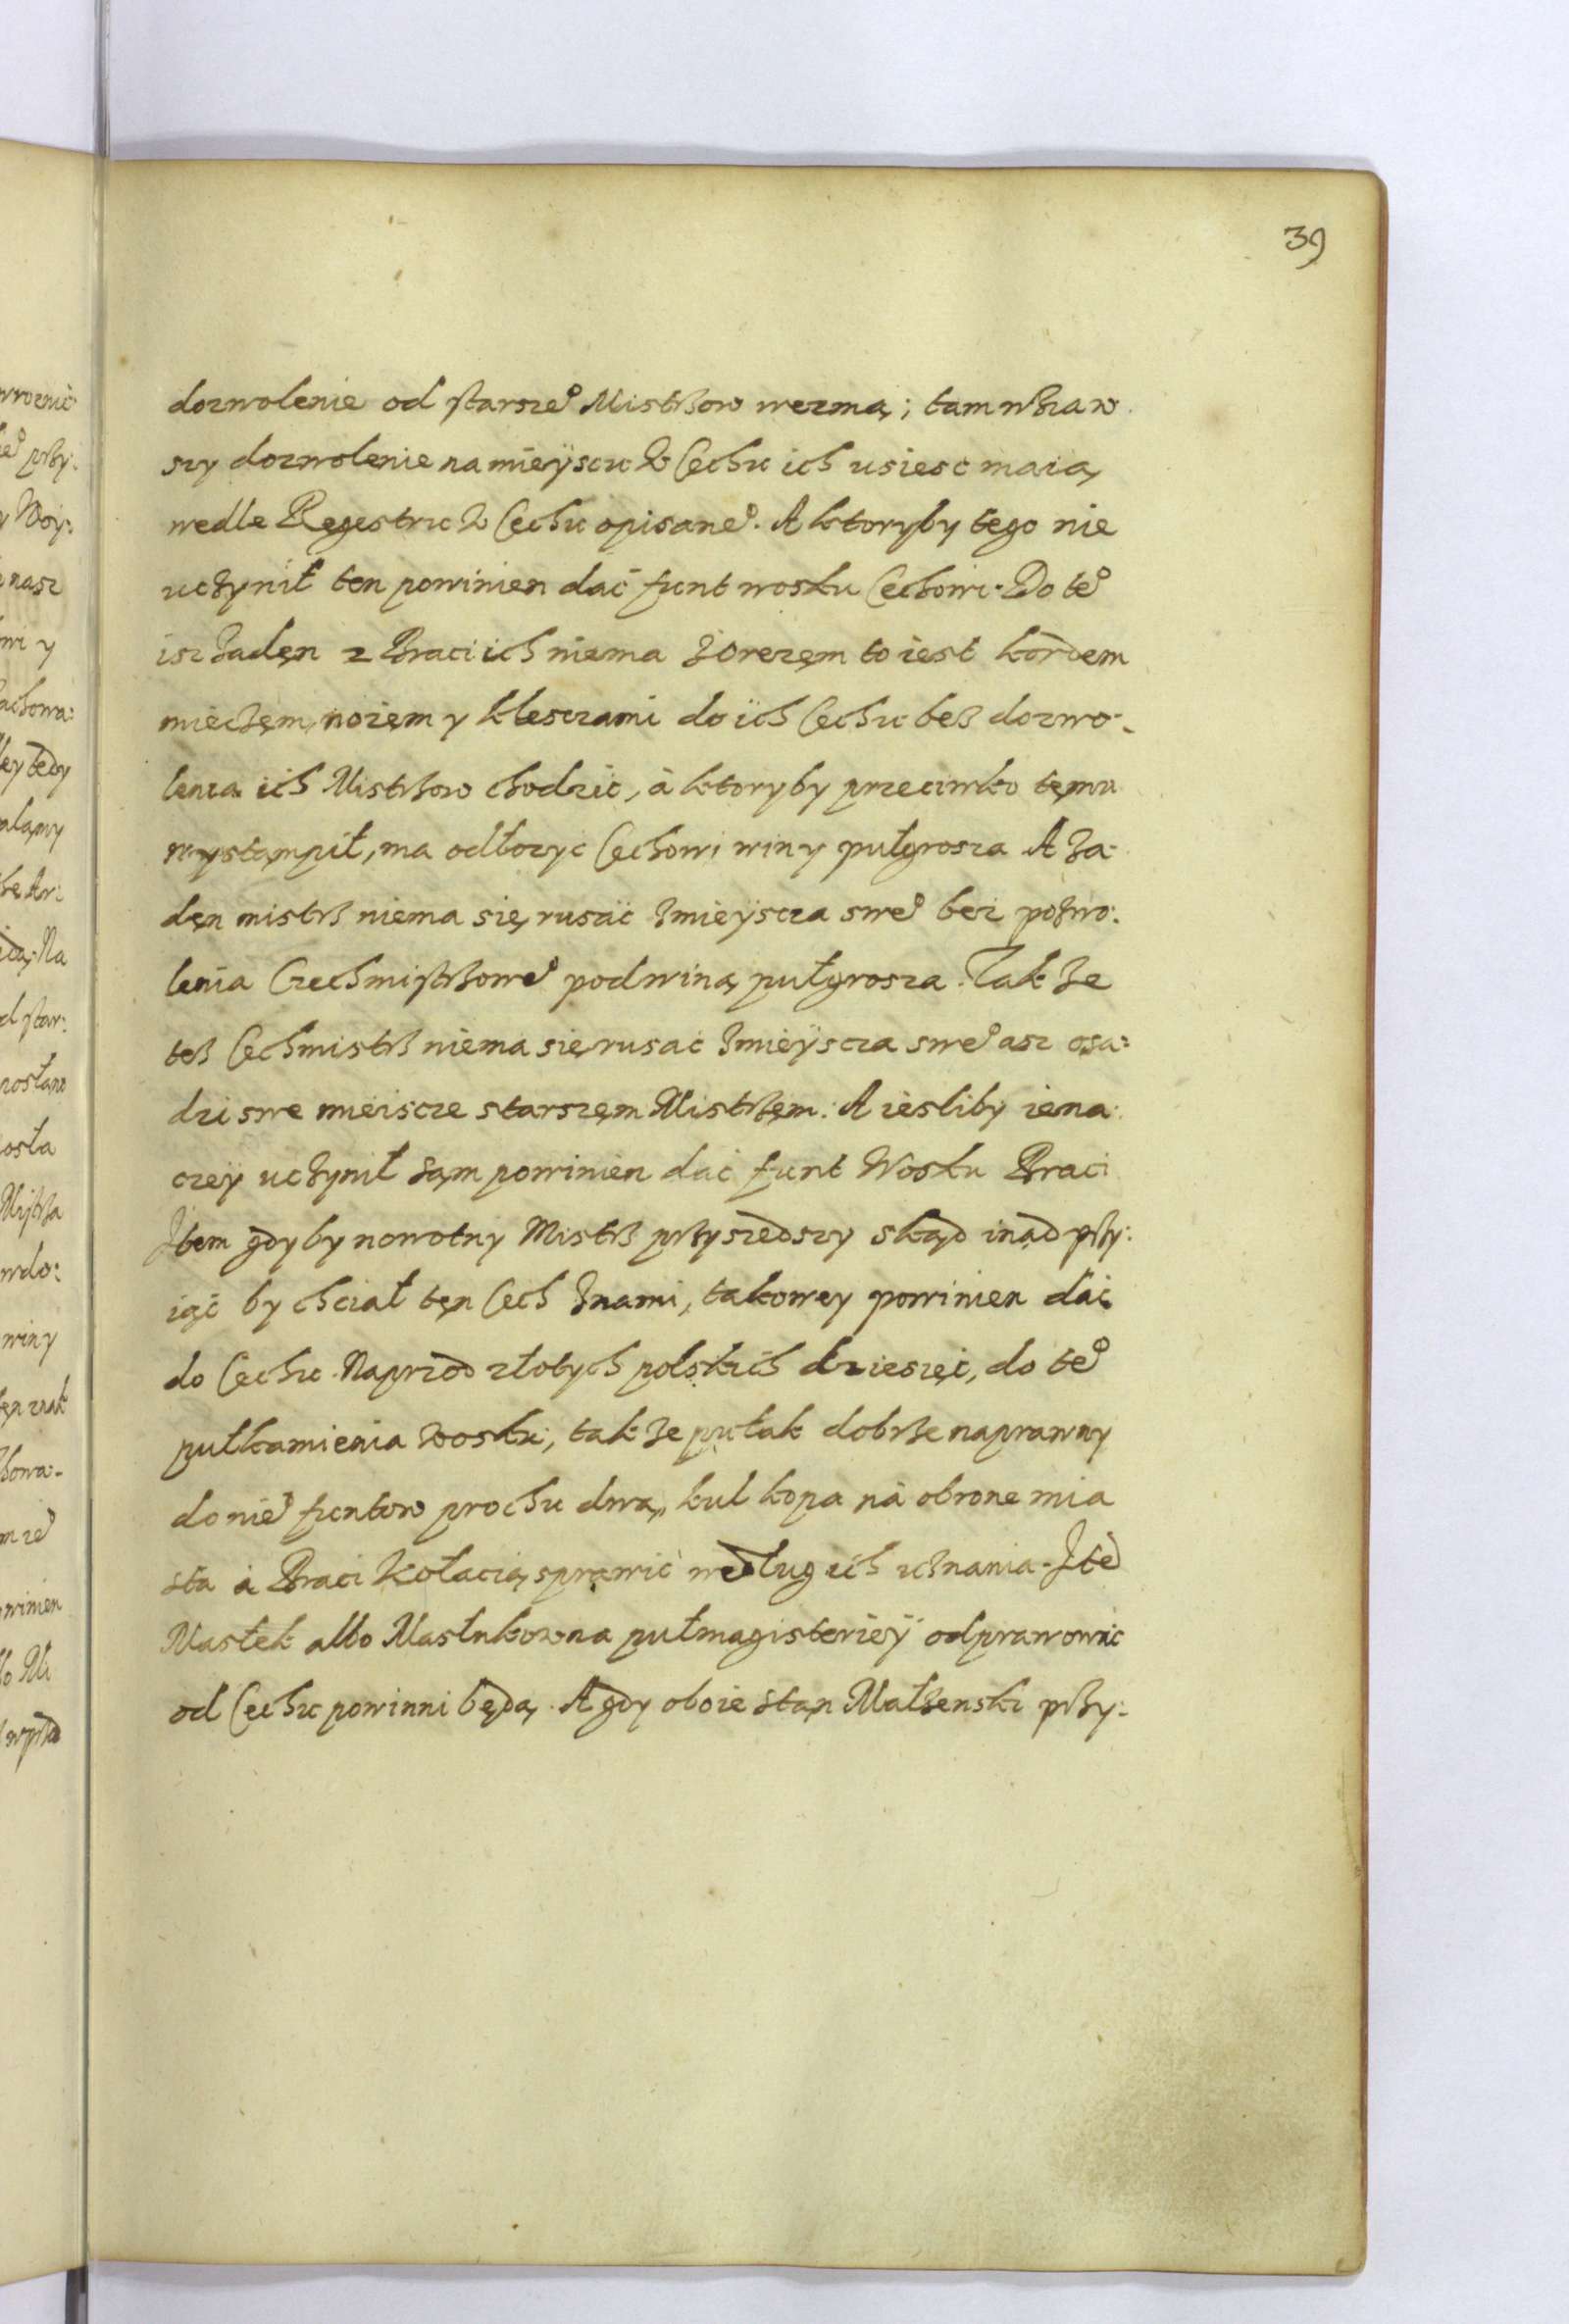 39
dozwolenie od starszeo Mistrzow wezmą; tam wziaw
szy dozwolenie na mieyscu w Cechu ich usiesc maią
wedle Regestru w Cechu opisaneo. A ktoryby tego nie
uczynił ten powinien dać funt wosku Cechowi. Do teo
isz żadęn z Braci ich niema z Orezęm to iest kordem
mieczęm, nożęm y kleszczami do ich Cechu bez dozwo:
lenia ich Mistrzow chodzić, á ktoryby przeciwko tęmu
wystąmpił, ma odłozyc Cechowi winy pułgrosza A ża:
dęn mistrz niema się rusać z mieyscza sweo bez pozwo:
lenia Czechmistrzoweo pod winą pułgrosza. Tak że
tesz Cechmistrz niema się rusać z mieyscza sweo asz osa:
dzi swe mieiscze starszęm Mistrzęm: A iesliby iena:
czey uczynił sąm powinien dać funt Wosku Braci
Item gdyby nowotny Mistrz przyszedszy skąd inąd przy:
iąć by chciał tęn Cech z nami, takowey powinien dać
do Cechu Naprzod złotych polskich dziesięć, do teo
pułkamienia wosku, tak że pułak dobrze naprawny
do nieo funtow prochu dwa, kul kopa ná obrone mia
sta á Braci Kołacią sprawić według ich uznania. Ite
Mastek albo Mastukowna pułmagisteriey odprawowac
od Cechu powinni będą. A gdy oboie stąn Małzenski przy: